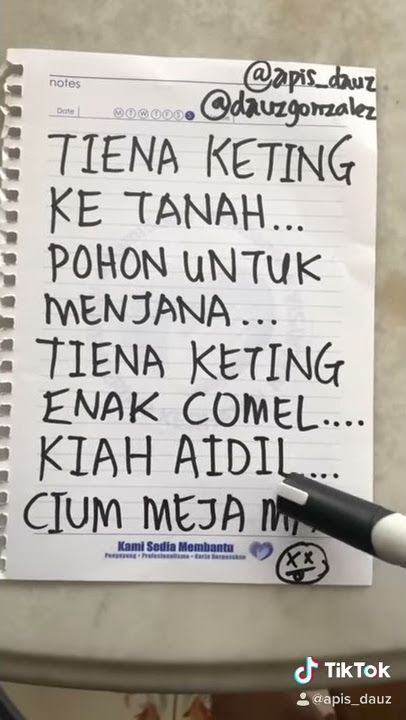 notes
@apis_dauz
Date M T W T F S S
@dauzgonzalez
TIENA KETING
KE TANAH...
POHON UNTUK
MENJANA...
TIENA KETING
ENAK COMEL....
KIAH AIDIL....
CIUM MEJA
Kami Sedia Membantu
TikTok
@apis_dauz